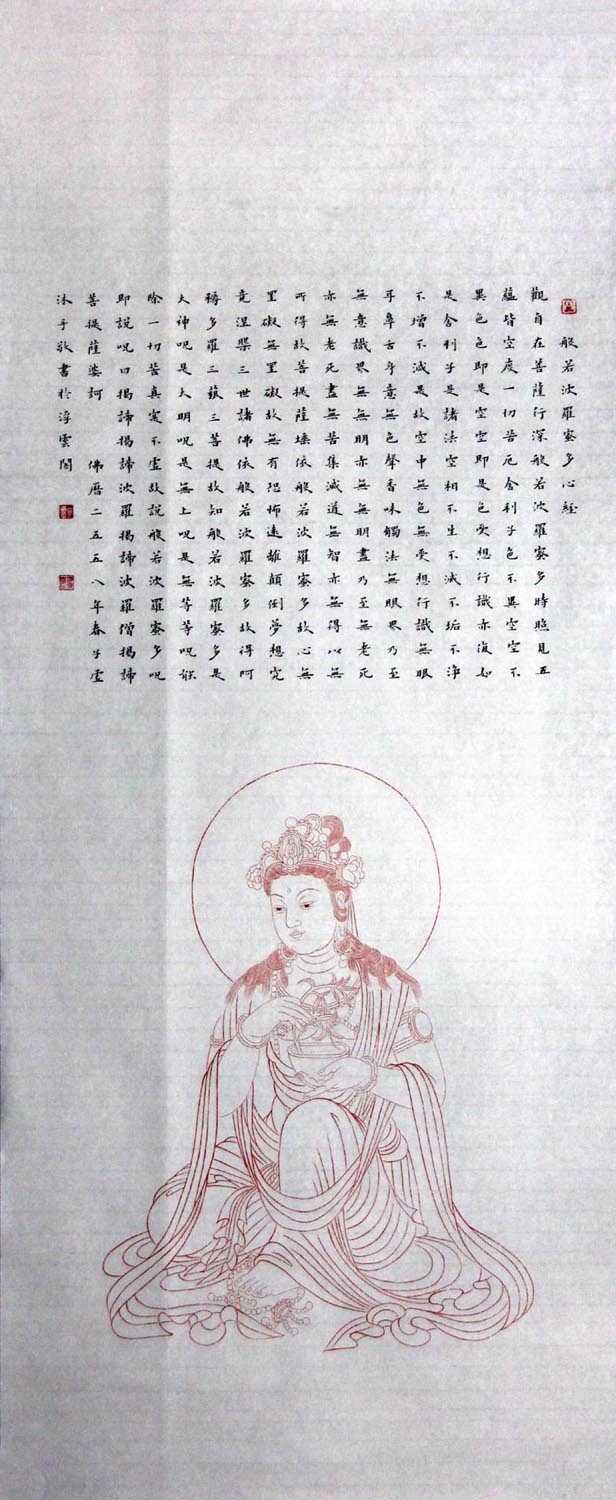 般若波羅蜜多心經
觀自在菩薩行深般若波羅蜜多時照見五
蘊皆空度一切苦厄舍利子色不異空空不
異色色即是空空即是色受想行識亦復如
是舍利子是諸法空相不生不滅不垢不淨
不增不減是故空中無色無受想行識無眼
耳鼻舌身意無色聲香味觸法無眼界乃至
無意識界無無明亦無無明盡乃至無老死
亦無老死盡無苦集滅道無智亦無得以無
所得故菩提薩埵依般若波羅蜜多故心無
罣礙無罣礙故無有恐怖遠離顛倒夢想究
竟涅槃三世諸佛依般若波羅蜜多故得阿
耨多羅三藐三菩提故知般若波羅蜜多是
大神呪是大明呪是無上呪是無等等呪能
除一切苦真實不虛故說般若波羅蜜多呪
即說呪曰揭諦揭諦波羅揭諦波羅僧揭諦
菩提薩婆訶 佛曆二五五八年春子虛
沐手敬書於浮雲閣